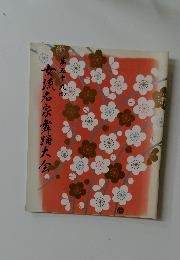 第五十九回
女流名家舞踊大会